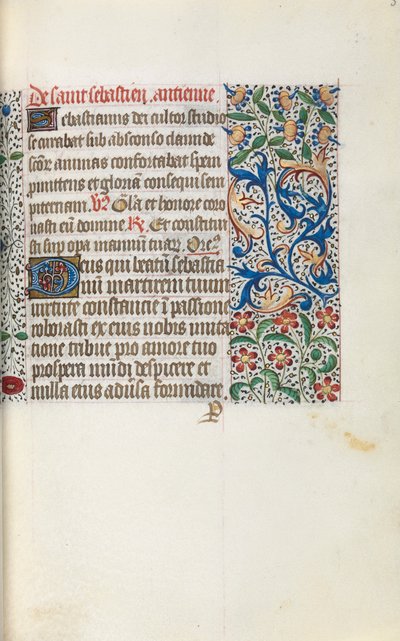 De saint sebastien. antienne.
Sebastianus dei cultor studio
se curabat sub absconso clami de
core animas confortabat spem
punittens et gloriam consequi sem
piternam. V. Gla et honore coro
nasti eum domine. R. Et constitui
sti sup opa manuum tuar. Ore.
Deus qui beatum sebastia
num martirem tuum
virtute constancie i passion
roborasti ex eius nobis imita
cione tribue pro amore tuo
prospera mudi despicere et
nulla eius adusa formidare.
P